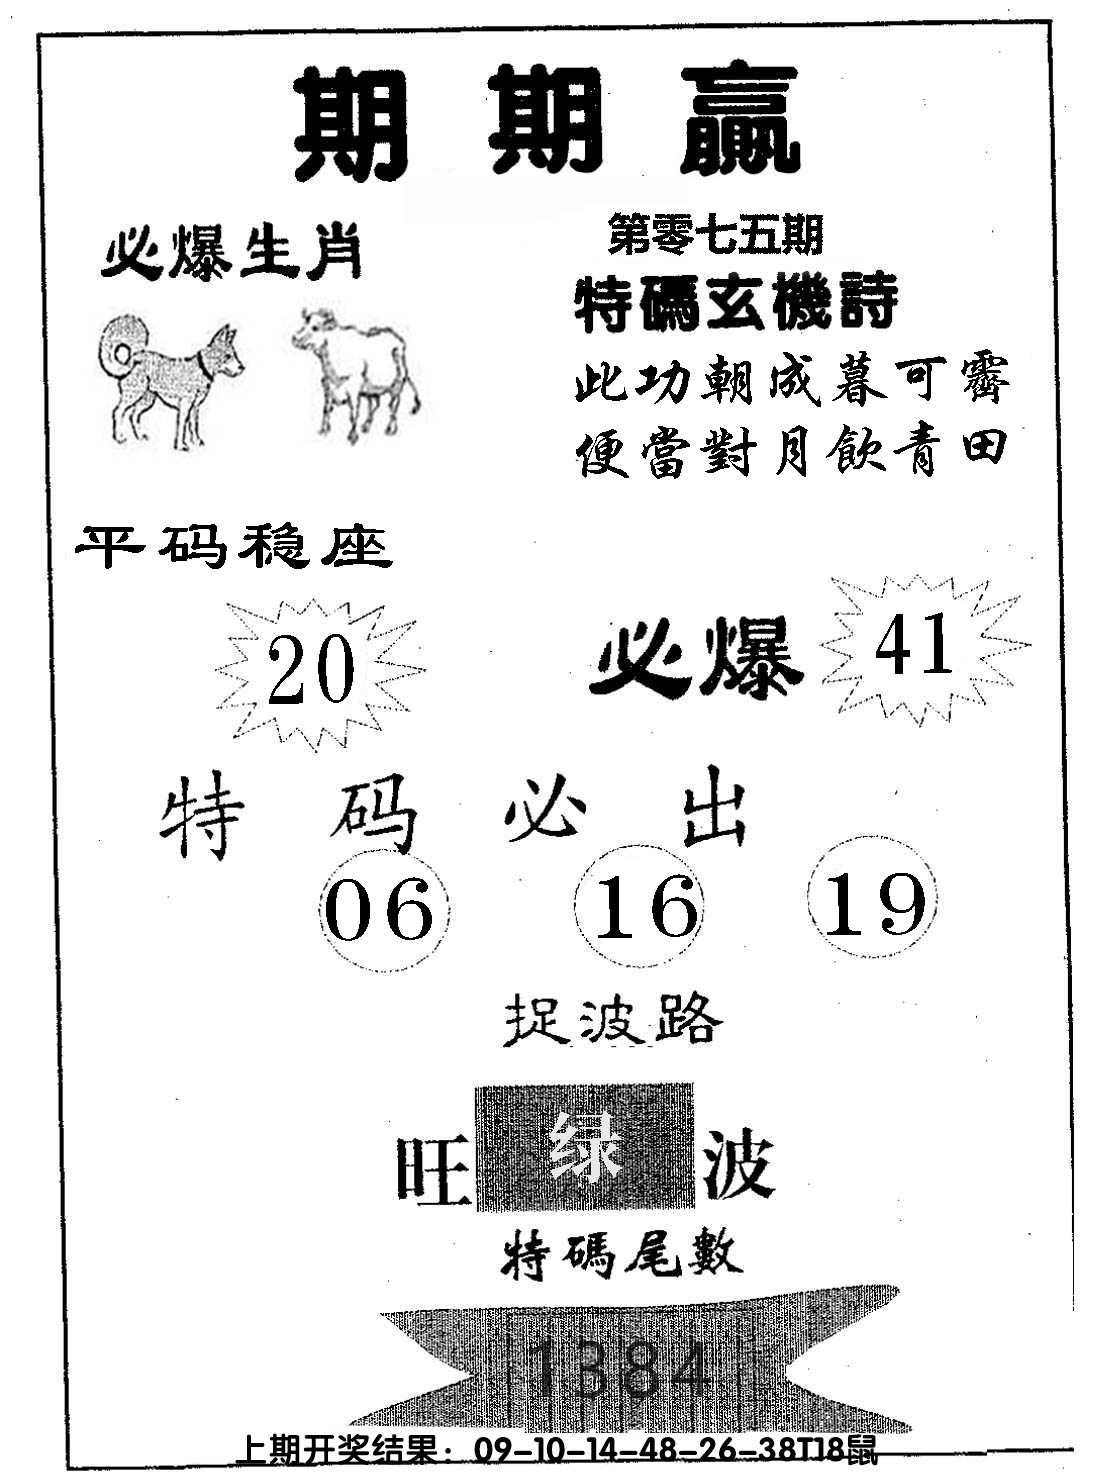 期期赢
必爆生肖
第零七五期
特碼玄機詩
此功朝成暮可霽
便當對月飲青田
平码稳座
20
必爆
41
特码必出
06 16 19
捉波路
旺绿波
特碼尾數
1384
上期开奖结果：09-10-14-48-26-38T18鼠